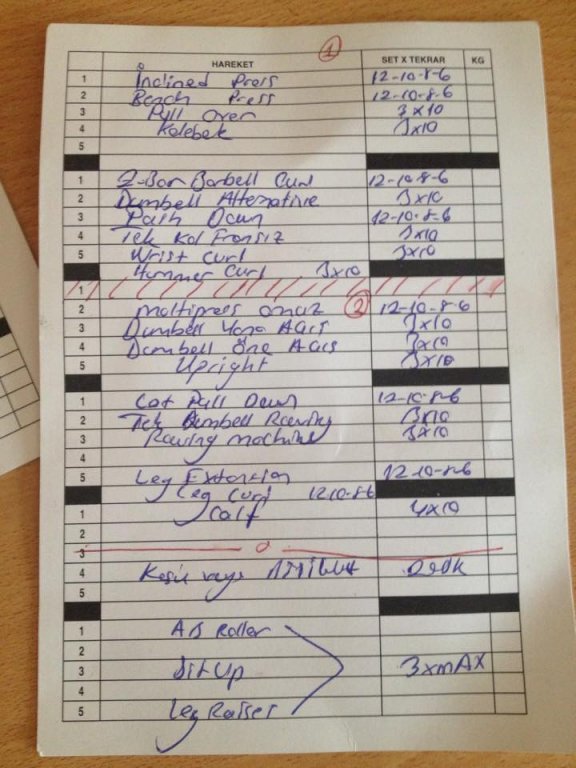 1
HAREKET SET X TEKRAR KG
1 İnclined Press 12-10-8-6
2 Bench Press 12-10-8-6
3 Pull Over 3x10
4 Kelebek 3x10
5
1 Z-Bar Barbell Curl 12-10-8-6
2 Dumbell Alternative 3x10
3 Push Down 12-10-8-6
4 Tek Kol Fransız 3x10
5 Wrist Curl 3x10
Hummer Curl 3x10
1
2 multipress omuz 2 12-10-8-6
3 Dumbell Yana Açış 3x10
4 Dumbell Öne Açış 3x10
5 Upright 3x10
1 Lat Pull Down 12-10-8-6
2 Tek Dumbell Rowing 3x10
3 Rowing machine 3x10
4
5 Leg Extension 12-10-8-6
Leg Curl 12-10-8-6
1 Calf 4x10
2
3
4
5
1 AB Roller
2
3 Sit Up 3xmAX
4
5 Leg Raises